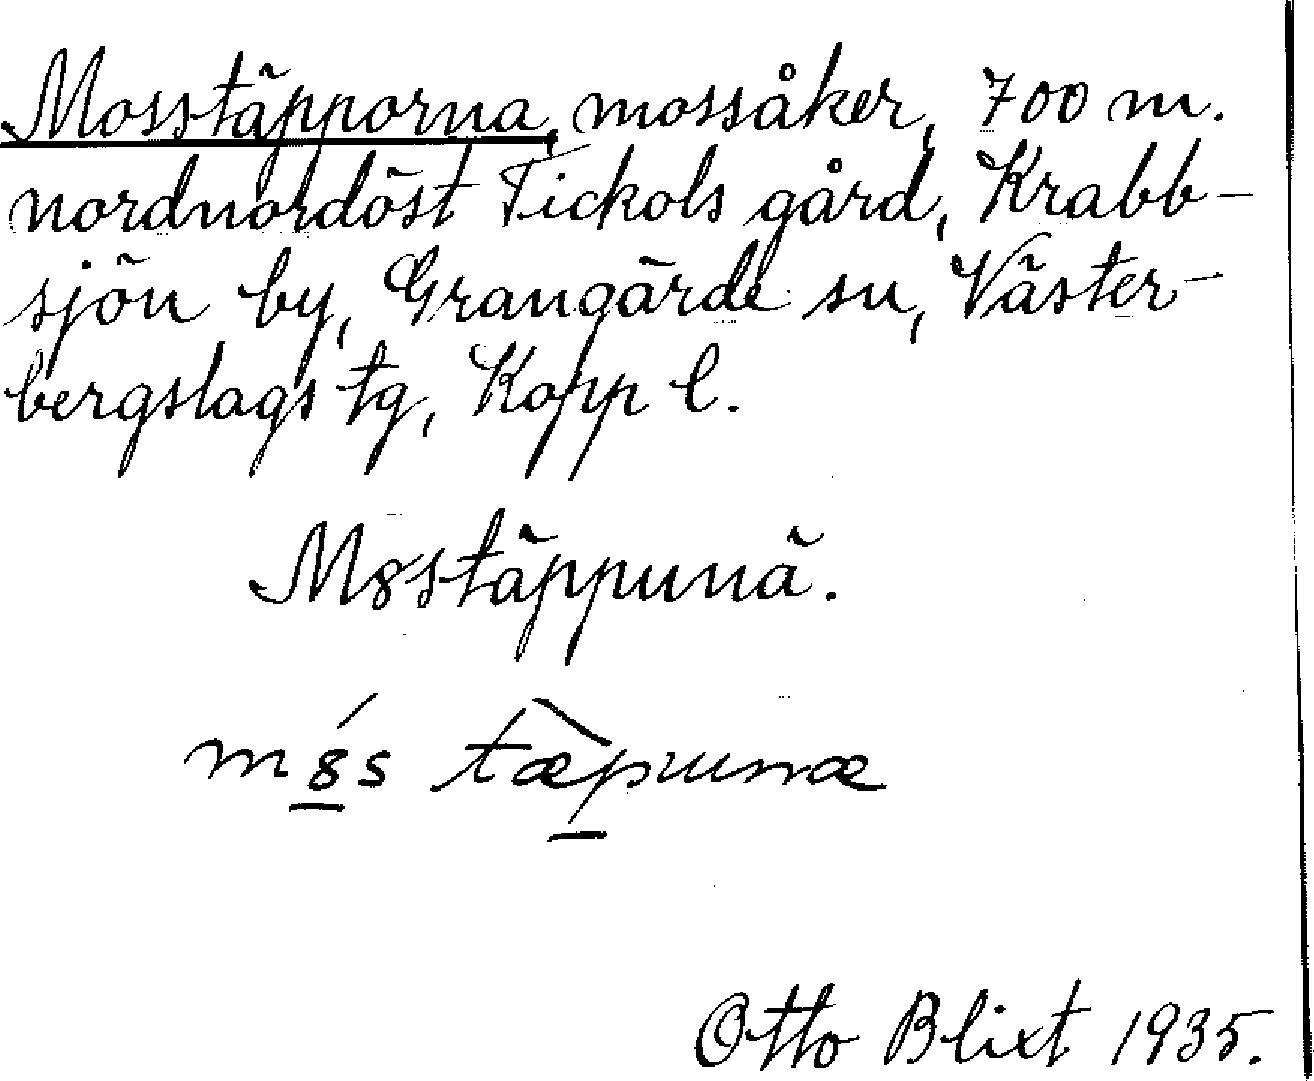 Mosstäpporna, mossåker, 700 m.
nordnordöst Tickols gård, Krabb-
sjön by, Grangärde sn, Väster-
bergslags tg, Kopp l.
M8stäppunä.
m8́s tæ̀punæ
Otto Blixt 1935.